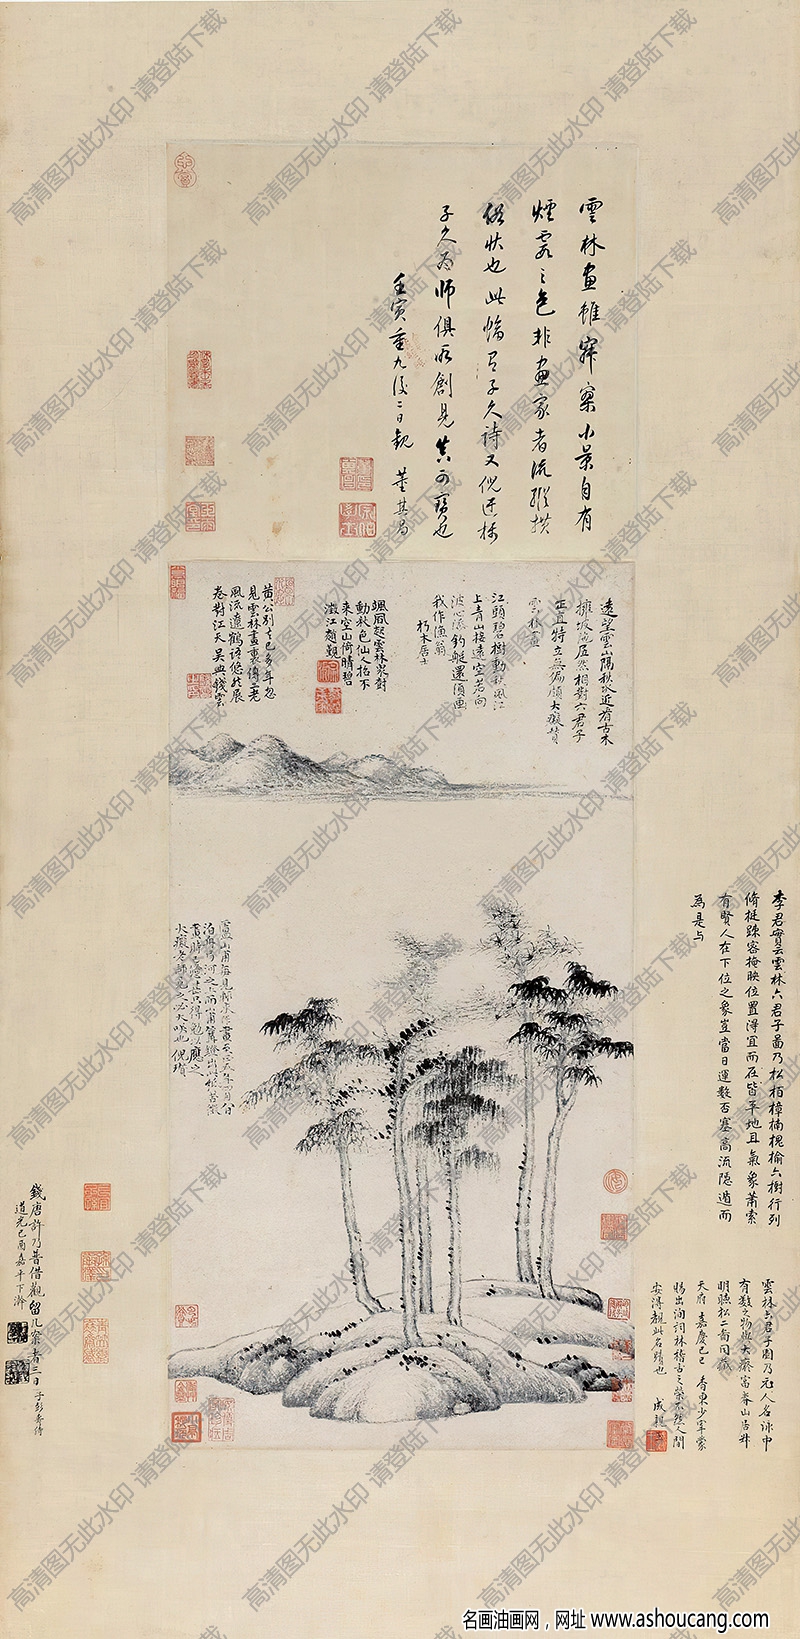 雲林畫雖寂寥小景自有
煙霞之色非畫家者流縱橫
俗狀也此幅有子久詩又倪迂稱
子久為師俱所創見真可寶也
壬寅重九後二日觀 董其昌
遠望雲山隔秋水近看古木
擁坡陁居然相對六君子
正直特立無偏頗大癡贊
雲林畫
江頭碧樹動秋風江
上青山接遠空若向
波心添釣艇還須畫
我作漁翁
朽木居士
颯風起雲林衆樹
動秋色仙人招不
來空山倚晴碧
澂江趙覲
黃公別去已多年忽
見雲林畫裏傳二老
風流遼鶴語悠然展
卷對江天 吳興錢雲
盧山甫每見輒求作畫至正五年四月八日
泊舟弓河之上而山甫篝燈出此紙苦徵
畫時已憊甚只得勉以應之
大癡老師見之必大笑也 倪瓚
李君實云雲林六君子圖乃松柏樟楠槐榆六樹行列
脩挺疎密掩映位置得宜而在皆平地且氣象蕭索
有賢人在下位之象豈當日運數否塞高流隱遁而
為是与
雲林六君子圖乃元人名
有數之物與大癡富春山居
天府 嘉慶己
賜出
安得覯此名蹟也 成親王
錢唐許乃普借觀留几案者三日 子彭壽侍
道光己酉嘉平下澣
高清图无此水印 请登陆下载
名画油画网，网址 www.ashoucang.com